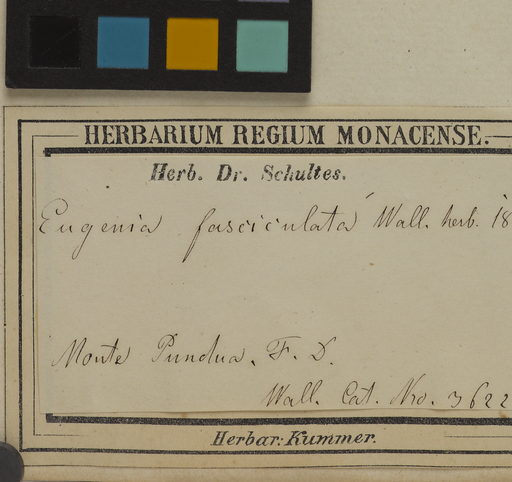 HERBARIUM REGIUM MONACENSE.
Herb. Dr. Schultes.
Eugenia fasciculata Wall. herb. 18
Monte Pundua. F. D.
Wall. Cat. No. 3622
Herbar: Kummer.